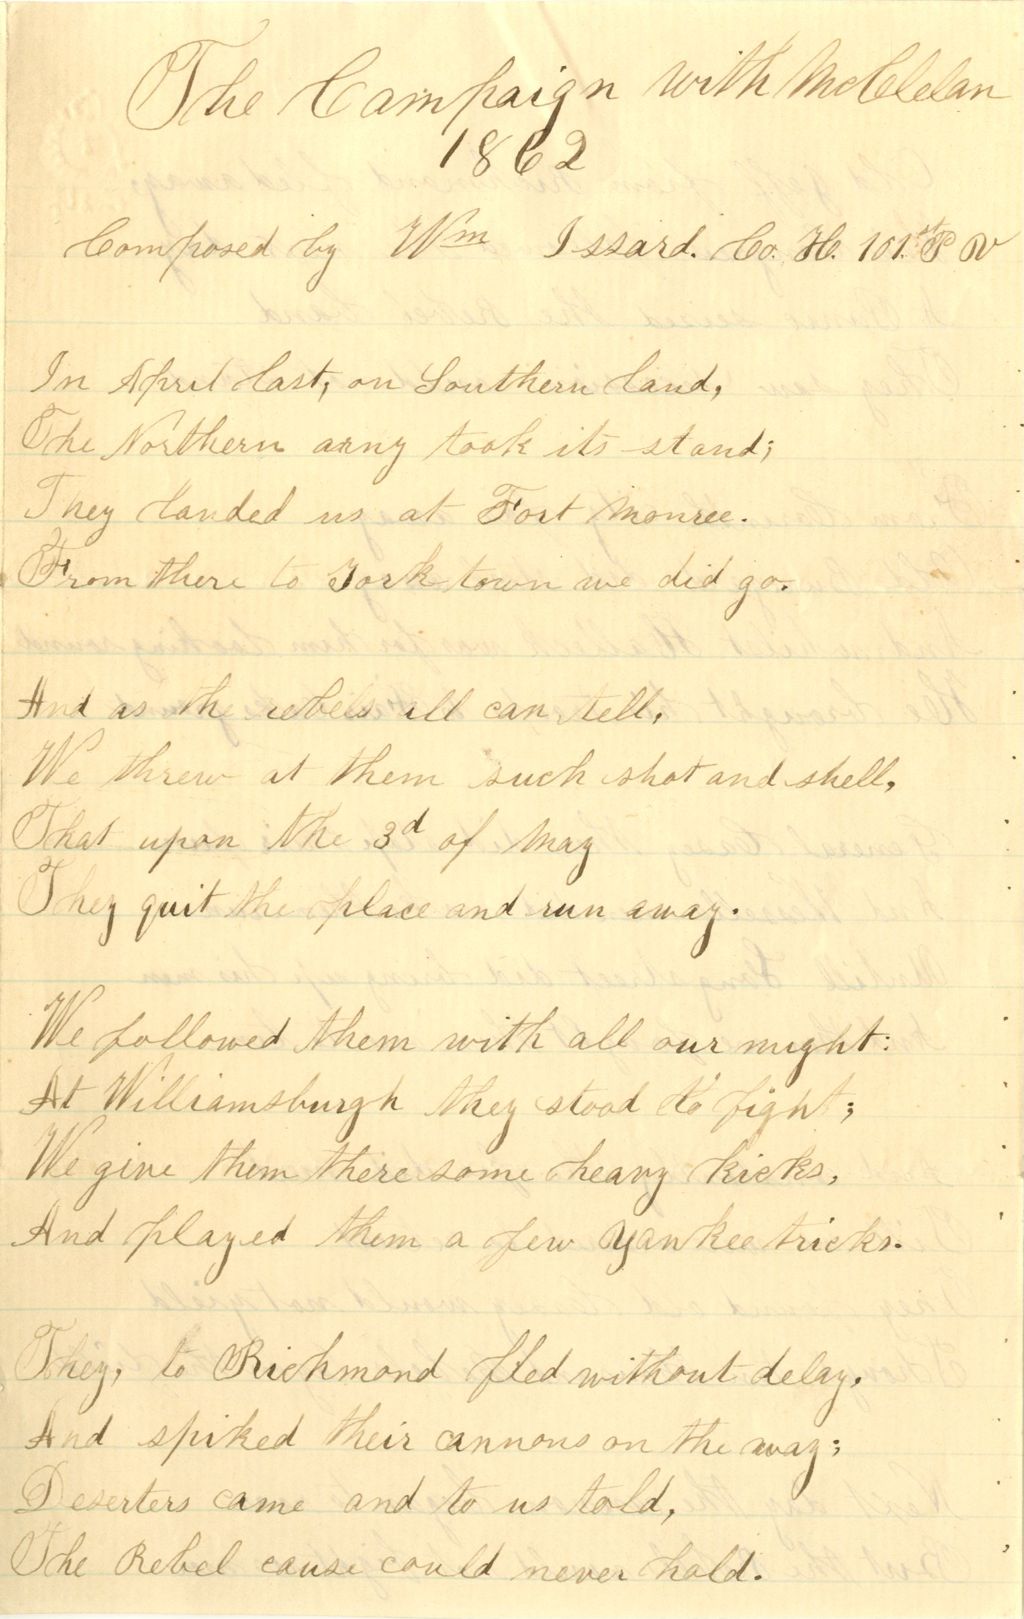 The Campaign with McClelan
1862
Composed by Wm Issard. Co. H. 101.th P V
In April last, on Southern land,
The Northern army took its stand;
They landed us at Fort Monroe.
From there to Yorktown we did go.
And as the rebels all can tell,
We threw at them such shot and shell,
That upon the 3d of May
They quit the place and run away.
We followed them with all our might:
At Williamsburgh they stood to fight;
We give them there some heavy kicks,
And played them a few Yankee tricks.
They, to Richmond fled without delay,
And spiked their cannons on the way;
Deserters came and to us told,
The Rebel cause could never hold.